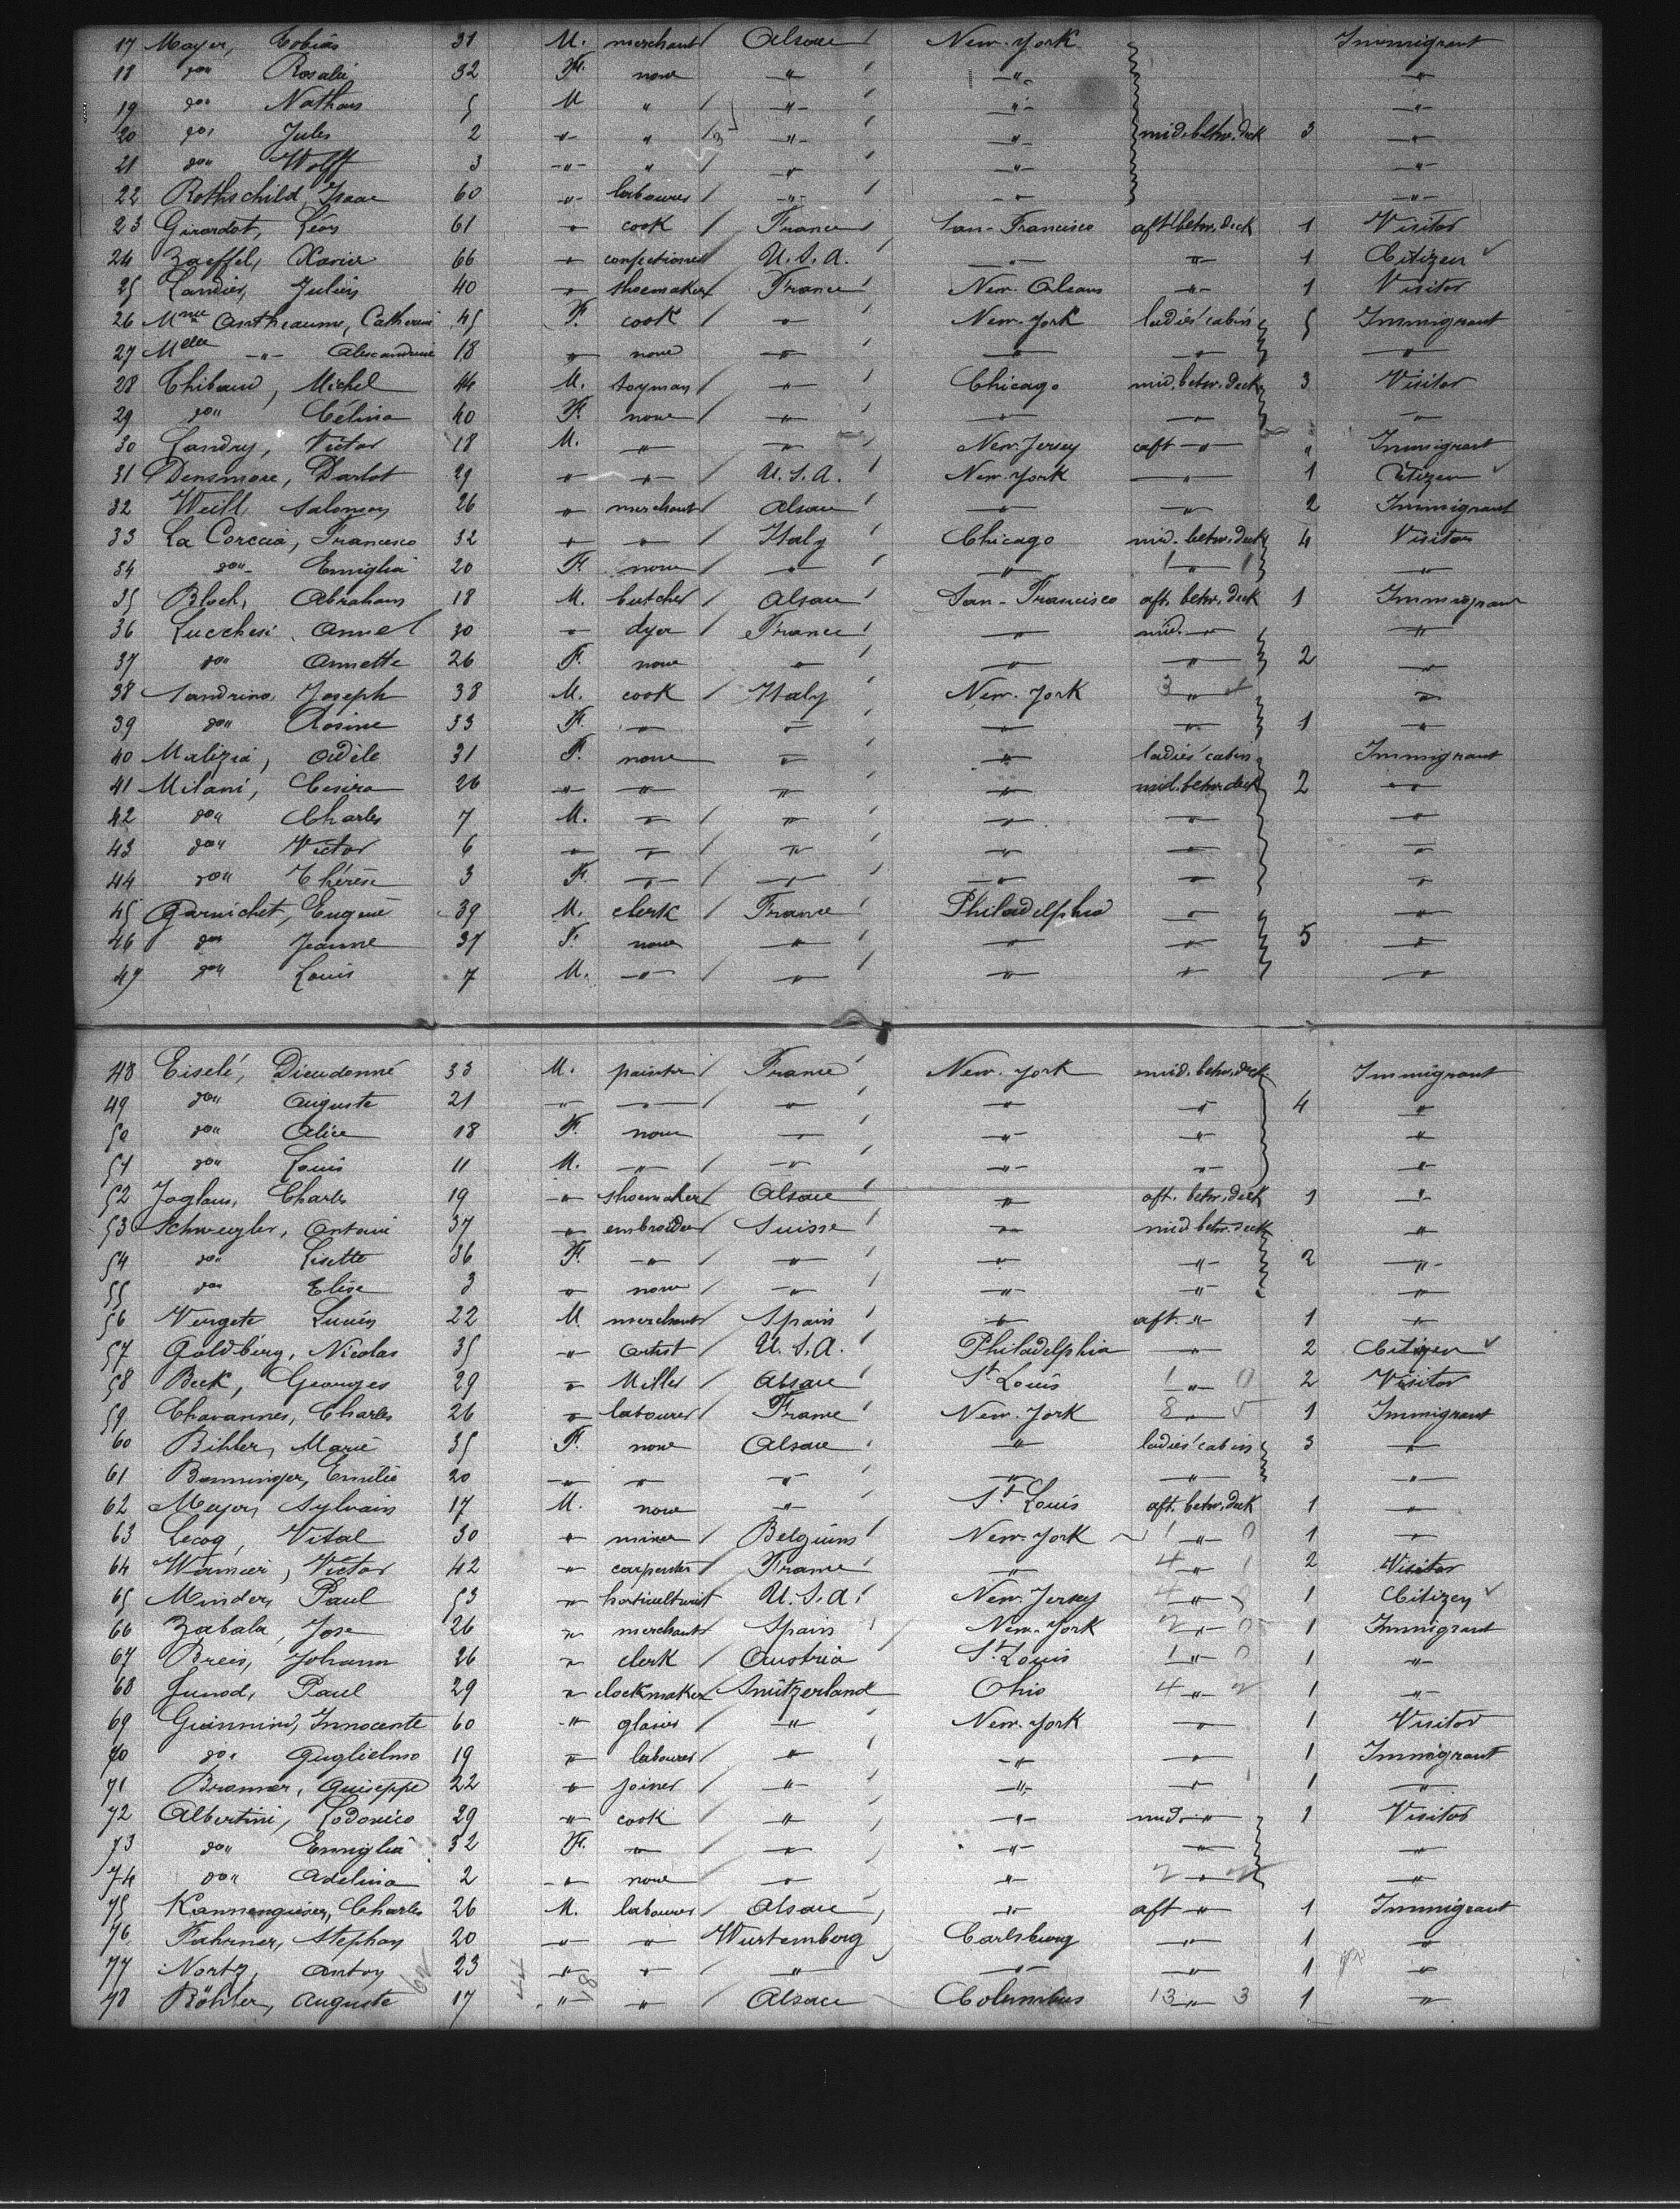 17 Mayer, Tobias 31 M. merchant Alsace New-York Immigrant
18 do" Rosalie 32 F. none " " "
19 do" Nathan 5 M " " " "
20 do" Jules 2 " " " " mid. betw. deck 3 "
21 do" Wolff 3 " " " " "
22 Rothschild, Isaac 60 " labourer " " "
23 Girardot, Léon 61 " cook France San-Francisco aft betw. deck 1 Visitor
24 Zaeffel, Xavier 66 " confectioner U.S.A. " " 1 Citizen
25 Landier, Julien 40 " shoemaker France New-Oleans " 1 Visitor
26 Mme Antheaume, Catherine 45 F. cook " New-York ladies' cabin 5 Immigrant
27 Melle " Alexandrine 18 " none " " " "
28 Thibaud, Michel 44 M. toyman " Chicago mid. betw. deck 3 Visitor
29 do" Célina 40 F. none " " " "
30 Landry, Victor 18 M. " " New-Jersey aft " " Immigrant
31 Densmore, Darlot 29 " " U.S.A. New-York " 1 Citizen
32 Weill, Salomon 26 " merchant Alsace " " 2 Immigrant
33 La Corcia, Francesco 32 " " Italy Chicago mid. betw. deck 4 Visitor
34 do" Emiglia 20 F. none " " " "
35 Bloch, Abraham 18 M. butcher Alsace San-Francisco aft. betw. deck 1 Immigrant
36 Lucchesi, Annel 30 " dyer France " mid. " "
37 do" Annette 26 F. none " " " 2 "
38 Sandrino, Joseph 38 M. cook Italy New-York 3 " "
39 do" Rosine 33 F. " " " " 1 "
40 Malizia, Adèle 31 F. none " " ladies' cabin Immigrant
41 Milani, Cesira 26 " " " " mid. betw. deck 2 "
42 do" Charles 7 M. " " " " "
43 do" Victor 6 " " " " " "
44 do" Thérèse 3 F. " " " " "
45 Garnichet, Eugène 39 M. clerk France Philadelphia " "
46 do" Jeanne 37 F. none " " " 5 "
47 do" Louis 7 M. " " " " "
48 Eiselé, Dieudonné 33 M. painter France New-York mid. betw. deck Immigrant
49 do" Auguste 21 " " " " " 4 "
50 do" Alice 18 F. none " " " "
51 do" Louis 11 M. " " " " "
52 Joglaus, Charles 19 " shoemaker Alsace " aft. betw. deck 1 "
53 Schwegler, Antoine 37 " embroider Suisse " mid betw. deck "
54 do" Lisette 36 F. " " " " 2 "
55 do" Elise 3 " none " " " "
56 Vergete Lucien 22 M. merchant Spain " aft. " 1 "
57 Goldberg, Nicolas 35 " artist U.S.A. Philadelphia " 2 Citizen
58 Beck, Georges 29 " Miller Alsace St. Louis 1 " 0 2 Visitor
59 Chavannes, Charles 26 " labourer France New-York 8 " 5 1 Immigrant
60 Bihler, Marie 35 F. none Alsace " ladies' cabin 3 "
61 Banninger, Emilie 20 " " " " " "
62 Meyer, Sylvain 17 M. none " St. Louis aft. betw. deck 1 "
63 Lecoq, Vital 30 " miner Belgium New-York 1 " 0 1 "
64 Warnier, Victor 42 " carpenter France " 4 " 2 Visitor
65 Minder, Paul 53 " horticulturist U.S.A. New-Jersey 4 " 1 Citizen
66 Zabala, Jose 26 " merchant Spain New-York 2 " 0 1 Immigrant
67 Breis, Johann 26 " clerk Austria St. Louis 1 " 0 1 "
68 Junod, Paul 29 " clockmaker Switzerland Ohio 4 " 2 1 "
69 Giannini, Innocente 60 " glasier " New-York " 1 Visitor
70 do" Guglielmo 19 " labourer " " " 1 Immigrant
71 Brammer, Guiseppe 22 " joiner " " " 1 "
72 Albertini, Lodovico 29 " cook " " mid. " 1 Visitor
73 do" Emiglia 32 F. " " " " "
74 do" Adelina 2 " none " " 2 " 2 "
75 Kannengieser, Charles 26 M. labourer Alsace " aft " 1 Immigrant
76 Fahrner, Stephan 20 " " Wurtemberg Carlsburg " 1 "
77 Nortz, Anton 23 " " " " " 1 "
78 Böhler, Auguste 17 " " Alsace Columbus 13 " 3 1 "